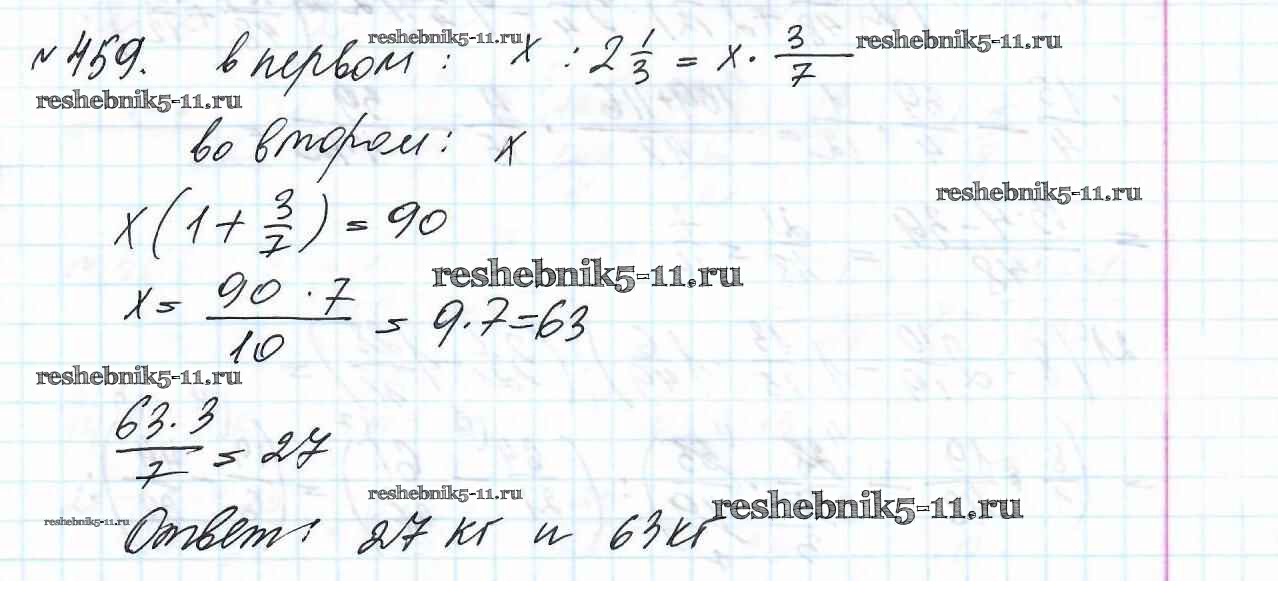 reshebnik5-11.ru
№459. в первом: x : 2 1/3 = x · 3/7 reshebnik5-11.ru
reshebnik5-11.ru
во втором: x
reshebnik5-11.ru
x(1 + 3/7) = 90
reshebnik5-11.ru
x = 90 · 7 / 10 = 9 · 7 = 63
reshebnik5-11.ru
63 · 3 / 7 = 27
reshebnik5-11.ru reshebnik5-11.ru
reshebnik5-11.ru
Ответ: 27 кг и 63 кг